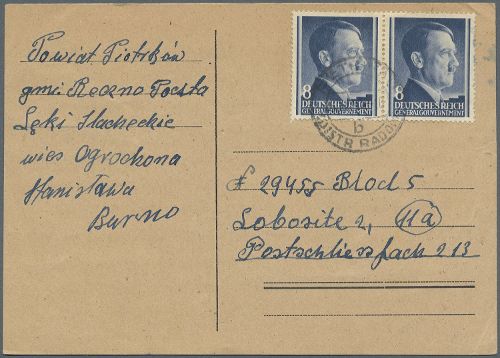 Powiat Piotrków
gmi Ręczno Poczta
Łęki Szlacheckie
wieś Ogrochona
Stanisława
Burno
8
DEUTSCHES REICH
GENERALGOUVERNEMENT
8
DEUTSCHES REICH
GENERALGOUVERNEMENT
b
DISTR RADOM
29455 Block 5
Lobositz 2, 11a
Postschliessfach 213